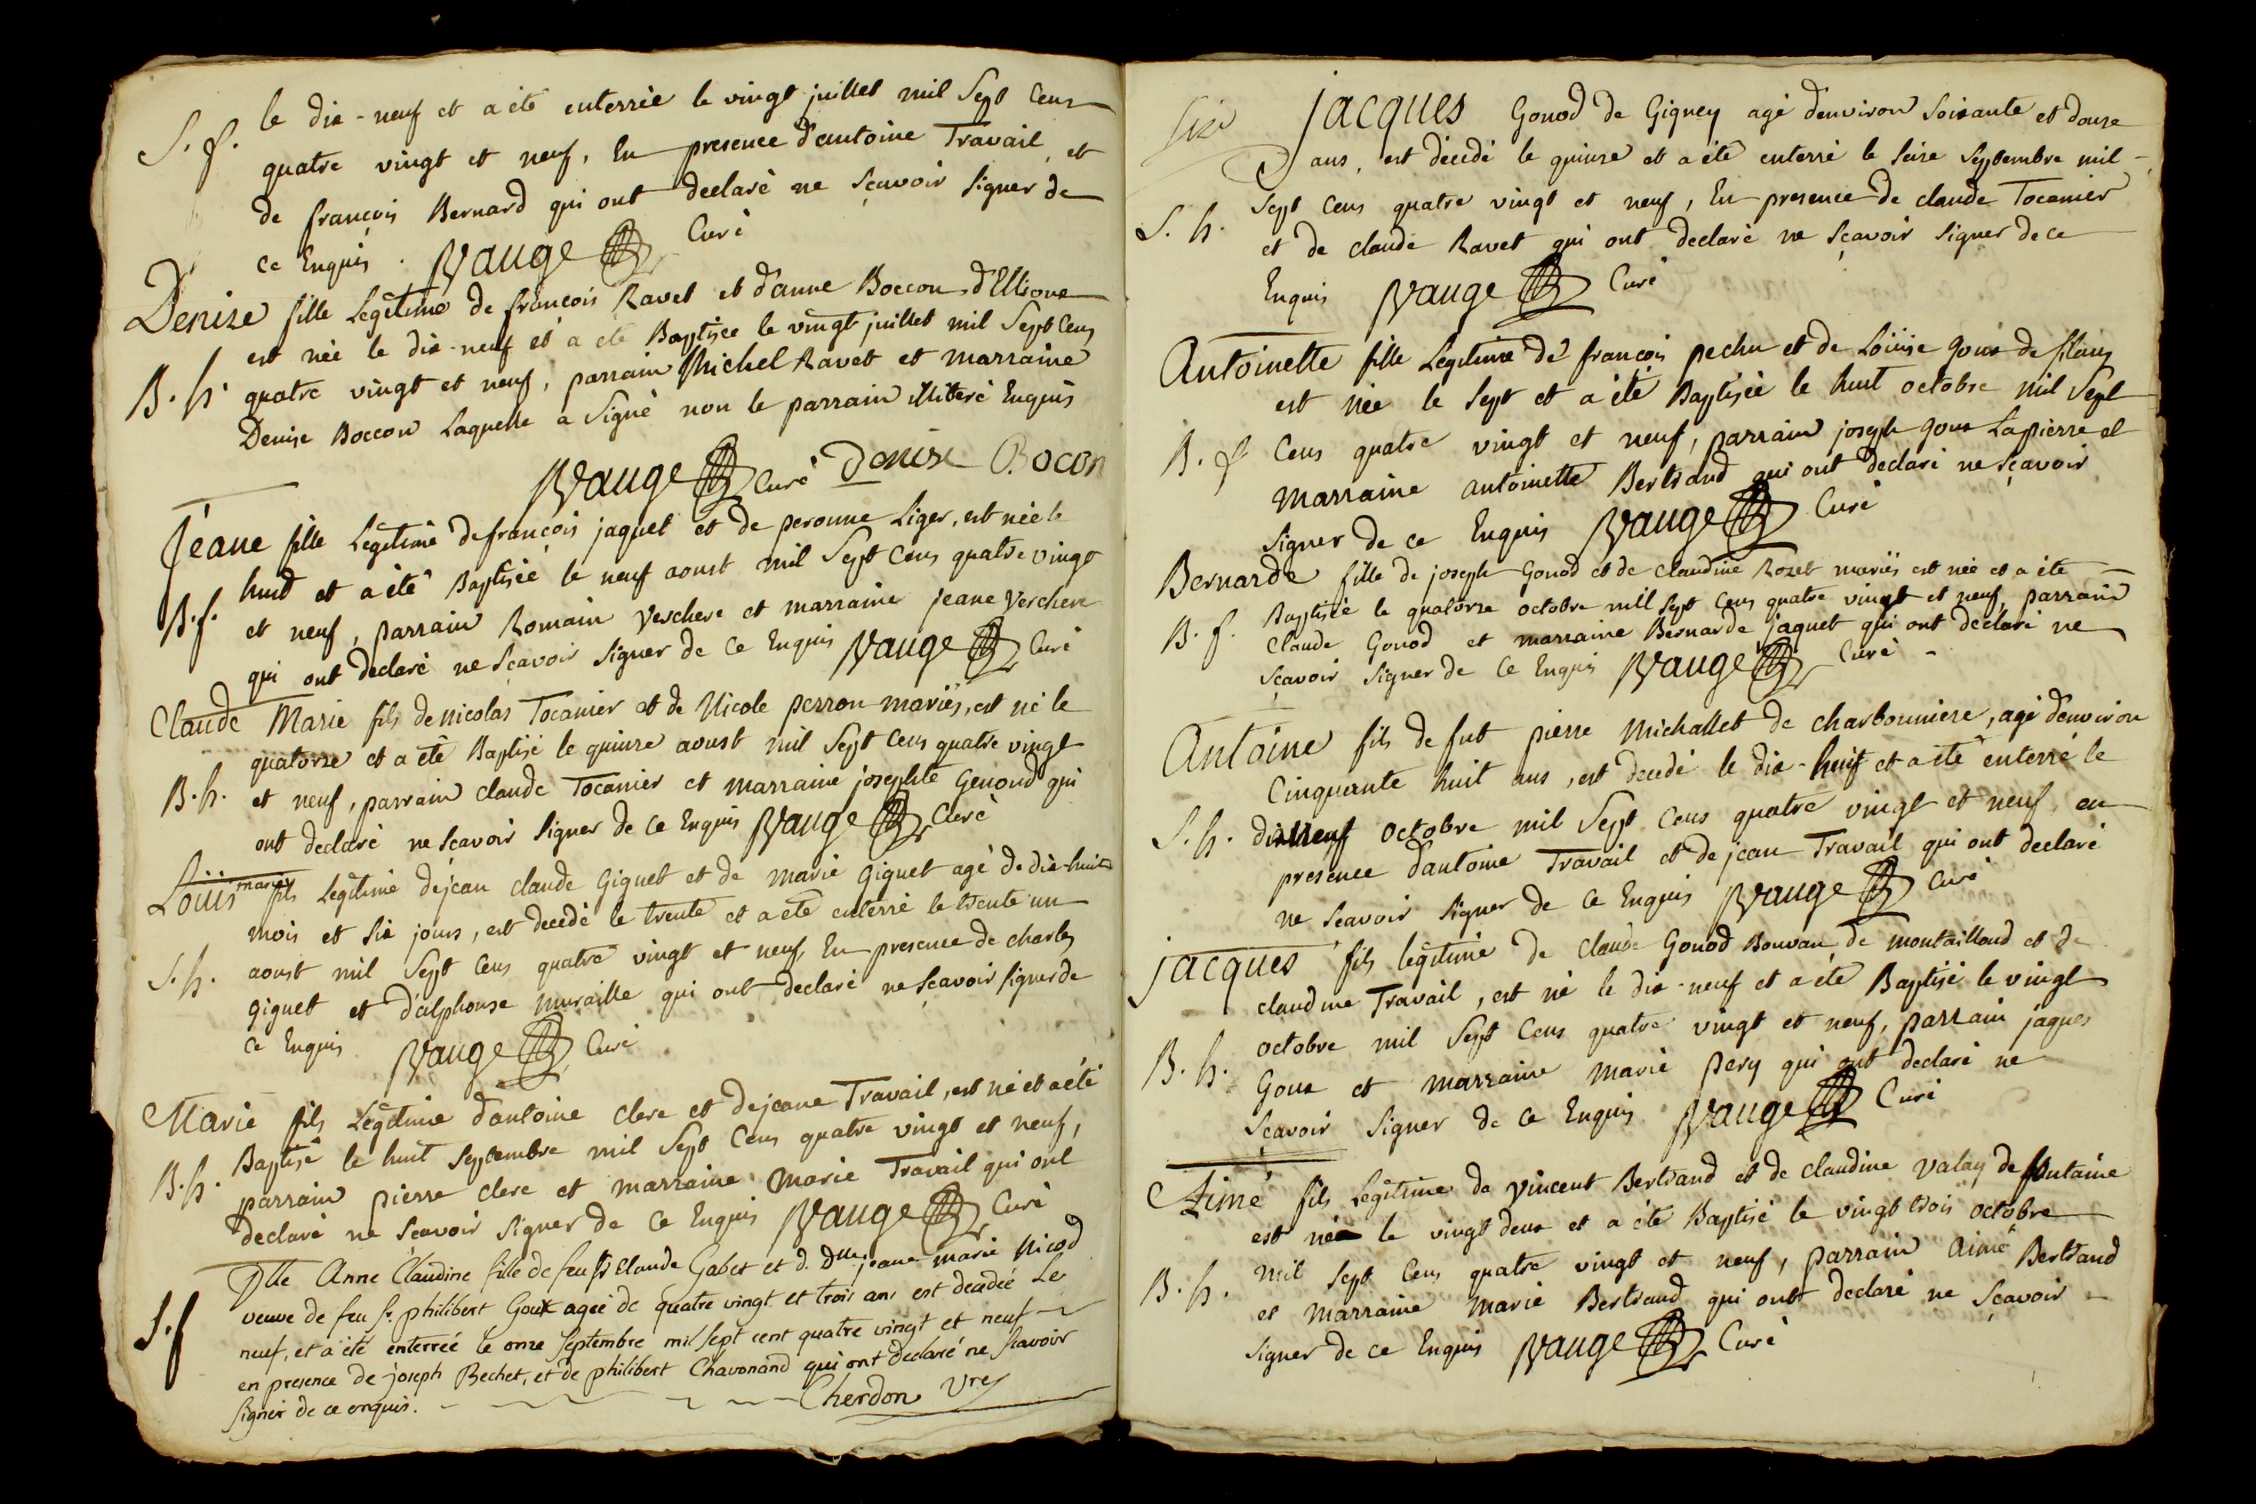 le dix-neuf et a été enterrée le vingt juillet mil Sept Cens
S. f.
quatre vingt et neuf, En presence d'antoine Travail et
de françois Bernard qui ont declaré ne sçavoir signer de
ce Enquis. Vauge Curé
Denise fille Legitime de françois Ravet et d'anne Boccon
est née le dix-neuf et a été Baptisée le vingt juillet mil Sept Cens
B. h. quatre vingt et neuf, parrain Michel Ravet et marraine
Denise Boccon Laquelle a signé non le parrain illiteré Enquis
Vauge Curé Denise Bocon
Jeane fille Legitime de françois jaquet et de peronne Liger, est née le
huit et a été Baptisée le neuf aoust mil Sept Cens quatre vingt
B. f. et neuf, parrain Romain Verchere et marraine jeane Verchere
qui ont declaré ne sçavoir signer de Ce Enquis Vauge Curé
Claude Marie fils de nicolas Tocanier et de Nicole perron mariés, est né le
quatorze et a été Baptisé le quinze aoust mil Sept Cens quatre vingt
B. h. et neuf, parrain claude Tocanier et marraine josephte Genoud qui
ont declaré ne scavoir signer de Ce Enquis Vauge Curé
Loüis marie fils Legitime de jean claude Giguet et de marie Giguet agé de dix-huit
mois et six jours, est decedé le trente et a été enterré le trente un
S. h. aoust mil Sept Cens quatre vingt et neuf, En presence de charles
giguet et d'alphonse muraille qui ont declaré ne sçavoir signer de
ce Enquis Vauge Curé
Marie fils Legitime d'antoine clere et de jeane Travail, est né et a été
Baptisé le huit Septembre mil Sept Cens quatre vingt et neuf,
B. h. parrain pierre clere et marraine Marie Travail qui ont
declaré ne Scavoir signer de Ce Enquis Vauge Curé
Dlle Anne Claudine fille de feu Sr Claude Gabet et d. Dlle jeane marie Nicod
veuve de feu Sr philibert Goux agée de quatre vingt et trois ans est decedée Le
S. f neuf, et a été enterrée le onze Septembre mil sept cent quatre vingt et neuf
en presence de joseph Bechet, et de philibert Chavonand qui ont declaré ne Scavoir
signer de ce enquis. Cherdon Vre
Jacques Gonod de Gigney agé d'environ soixante et douze
ans, est décédé le quinze et a été enterré le seize Septembre mil
Sept Cens quatre vingt et neuf, En presence de claude Tocanier
S. h.
et de claude Ravet qui ont declaré ne sçavoir signer de ce
Enquis Vauge Curé
Antoinette fille Legitime de françois pechu et de Loüise goux
est née le Sept et a été Baptisée le huit octobre mil Sept
B. f Cens quatre vingt et neuf, parrain joseph goux Lapierre et
Marraine antoinette Bertrand qui ont declaré ne sçavoir
signer de ce Enquis Vauge Curé
Bernarde fille de joseph Gonod et de claudine Rozet mariés est née et a été
Baptisée le quatorze octobre mil Sept Cens quatre vingt et neuf, parrain
B. f. Claude Gonod et marraine Bernarde jaquet qui ont déclaré ne
sçavoir signer de Ce Enquis Vauge Curé
Antoine fils de fut pierre Michallet de charbonniere, agé d'environ
Cinquante huit ans, est decedé le dix-huit et a été enterré le
S. h. dixneuf octobre mil Sept Cens quatre vingt et neuf, en
presence d'antoine Travail et de jean Travail qui ont declaré
ne scavoir signer de Ce Enquis Vauge Curé
Jacques fils legitime de Claude Gonod Bouvan de montailloud et de
claudine Travail, est né le dix-neuf et a été Baptisé le vingt
octobre mil Sept Cens quatre vingt et neuf, parrain jaques
B. h.
Goux et marraine marie pery qui ont declaré ne
sçavoir signer de Ce Enquis Vauge Curé
Aimé fils Legitime de Vincent Bertrand et de claudine Valay de fontaine
est né le vingt deux et a été Baptisé le vingt trois octobre
mil Sept Cens quatre vingt et neuf, parrain Aimé Bertrand
B. h.
et marraine marie Bertrand qui ont declaré ne sçavoir
signer de ce Enquis Vauge Curé